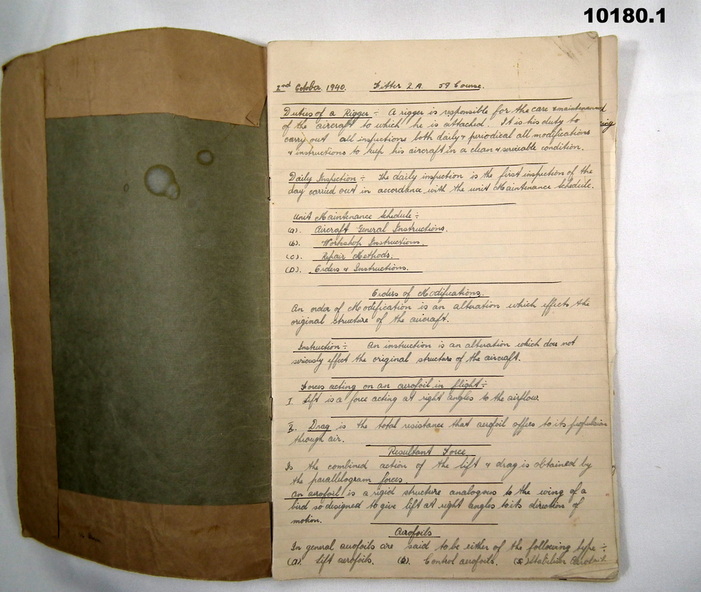 10180.1
2nd October 1940. Fitter 2A. 59 Course.
Duties of a Rigger :- A rigger is responsible for the care &
of the aircraft to which he is attached. It is his duty to
carry out all inspections both daily & periodical all modifications
& instructions to keep his aircraft in a clean & servicable condition.
Daily Inspection :- The daily inspection is the first inspection of the
day carried out in accordance with the unit Maintenance Schedule.
Unit Maintenance Schedule :-
(a). Aircraft General Instructions.
(b). Workshop Instructions.
(c). Repair Methods.
(D). Orders & Instructions.
Orders of Modifications.
An order of Modification is an alteration which effects the
original structure of the aircraft.
Instruction :- An instruction is an alteration which does not
seriously effect the original structure of the aircraft.
Forces acting on an aerofoil in flight :-
1. Lift is a force acting at right angles to the airflow.
2. Drag is the total resistance that aerofoil offers to its propulsion
through air.
Resultant Force
Is the combined action of the lift & drag is obtained by
the parallelogram forces.
an aerofoil is a rigid structure analogous to the wing of a
bird so designed to give lift at right angles to its direction of
motion.
Aerofoils
In general aerofoils are said to be either of the following type :-
(a) lift aerofoils. (b). Control aerofoils. (c) Stabilizer